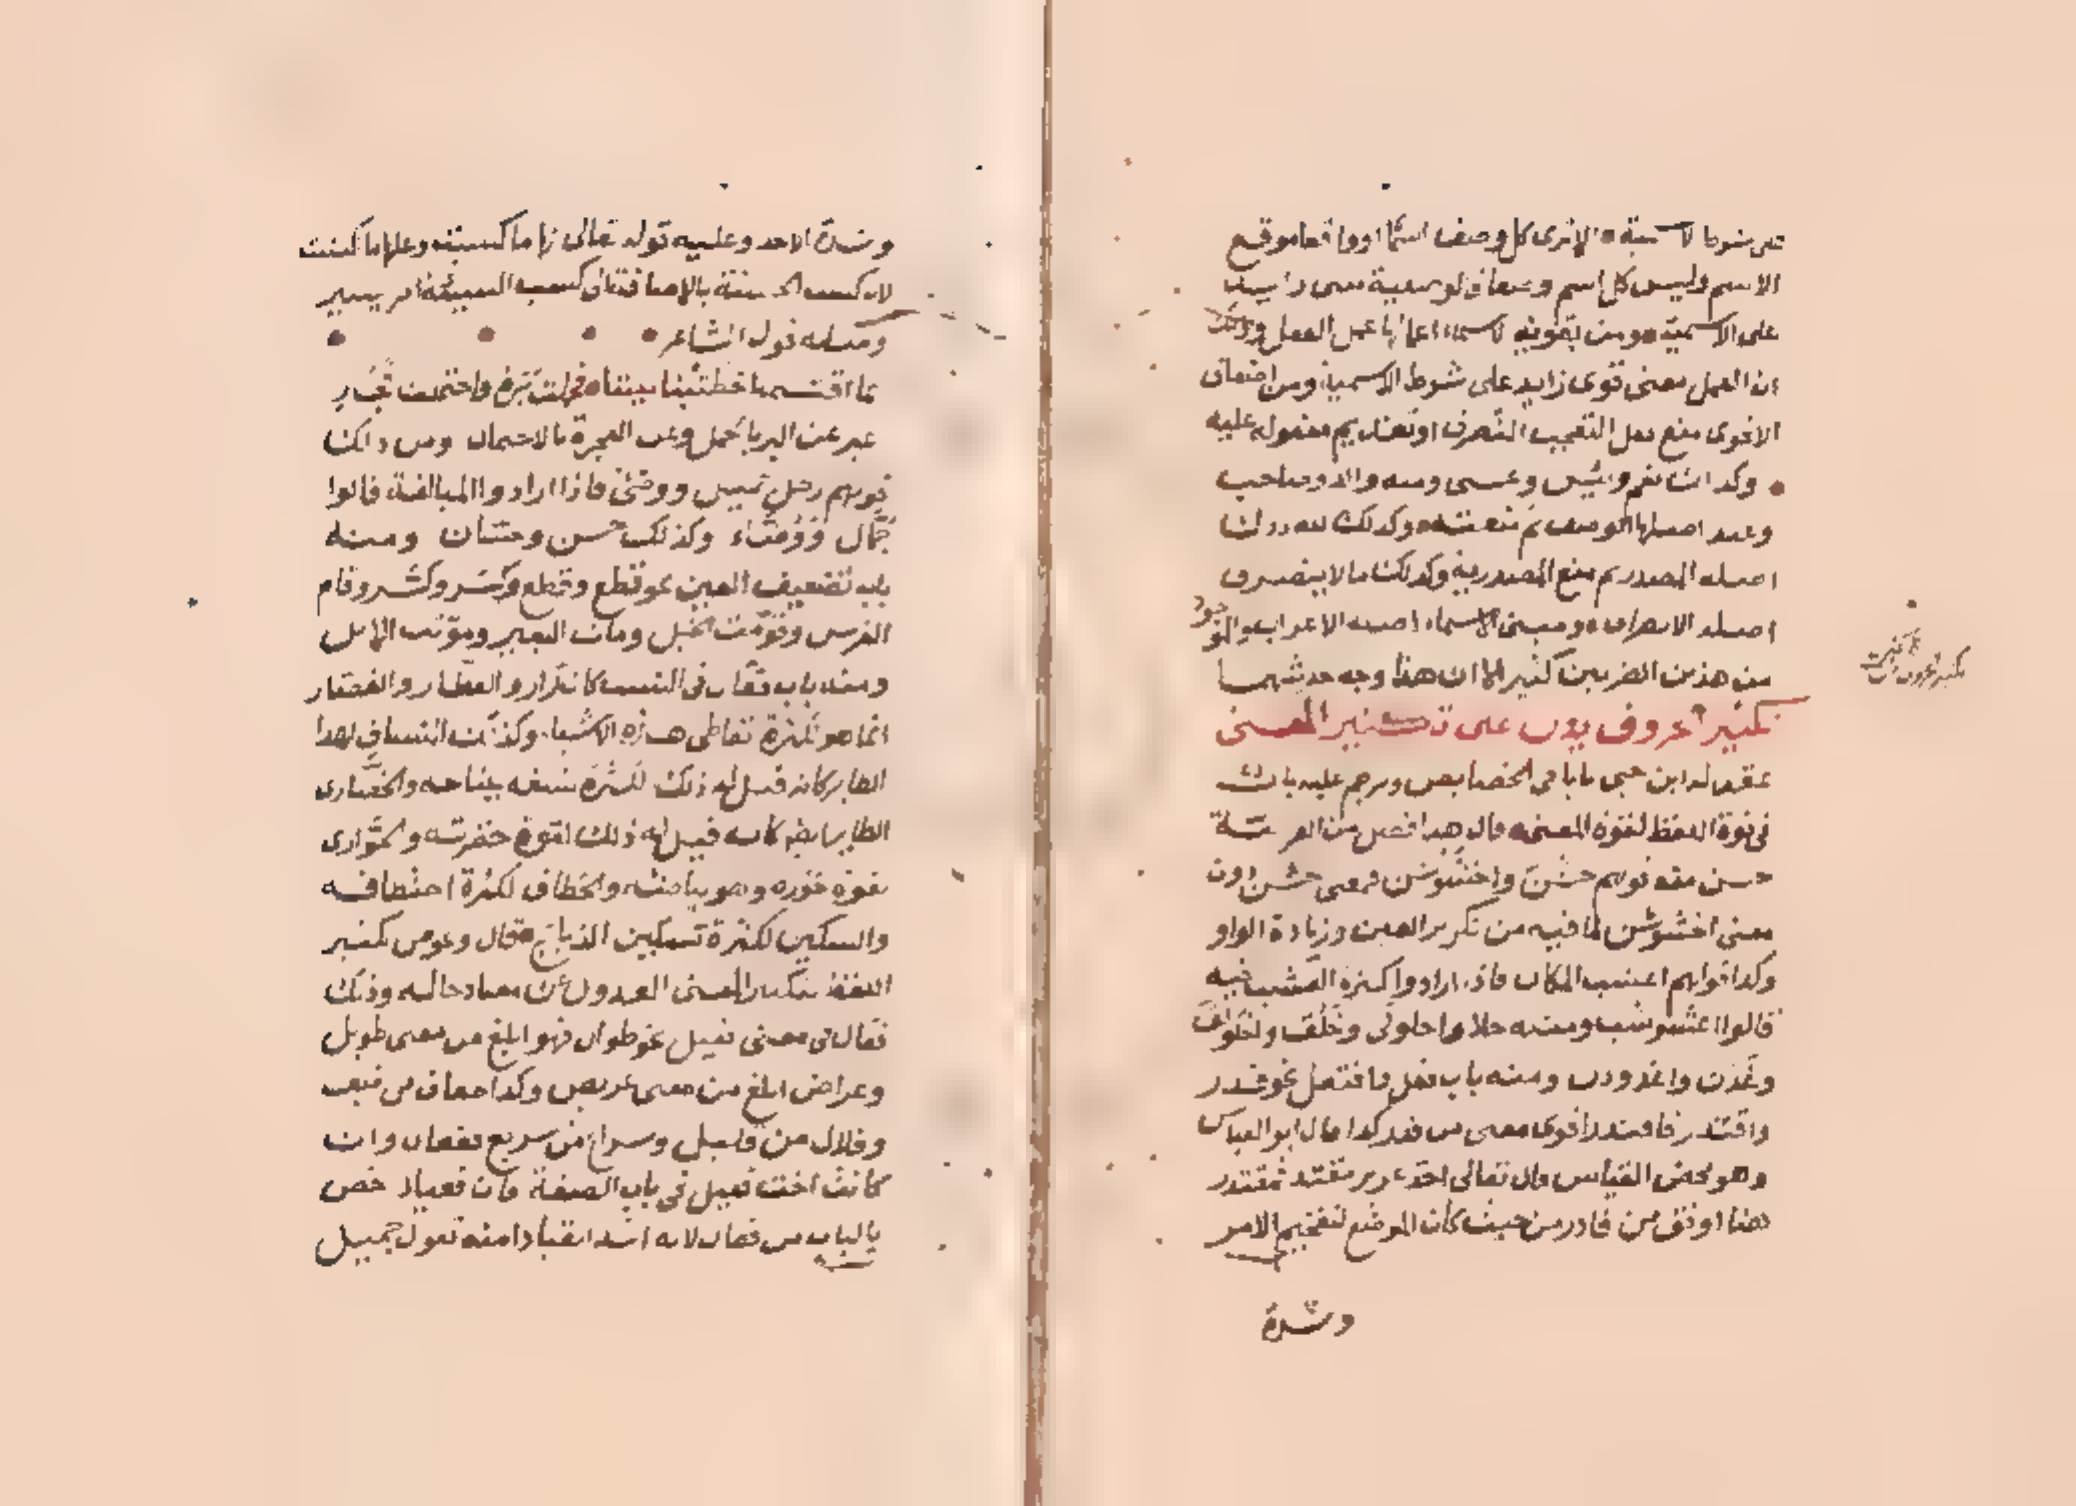 على شرط الاسمية الا ترى كل وصف اسما او واقعا موقع
الاسم وليس كل اسم وصفا
على الاسمية ومن تقوية الاسماء اعمالها عمل الفعل وذلك
ان العمل معنى قوى زايد على شرط الاسمية ومن اضعاف
الاقوى منع فعل التعجب التصرف او تقديم مفعوله عليه
وكذلك نعم وبئس وعسى ومنه والد وصاحب
وعبد اصلها الوصف ثم منعته وكذلك لله درك
اصله المصدر ثم منع المصدرية وكذلك ما لا ينصرف
اصله الانصراف ومبنى الاسماء اصله الاعراب والموجود
من هذين الضربين كثير الا ان هذا وجه حديثهما
تكثير الحروف يدل على تكثير المعنى
عقد له ابن جنى بابا فى الخصايص وترجم عليه باب
فى قوة اللفظ لقوة المعنى قال هذا فصل من العربية
حسن منه قولهم خشن واخشوشن فمعنى خشن دون
معنى اخشوشن لما فيه من تكرير العين وزيادة الواو
وكذا قولهم اعشب المكان فاذا ارادوا كثرة العشب فيه
قالوا اعشوشب ومنه حلا واحلولى وخلق واخلولق
وغدن واغدودن ومنه باب فعل وافتعل نحو قدر
واقتدر فاقتدر اقوى معنى من قدر كذا قال ابو العباس
وهو محض القياس قال تعالى اخذ عزيز مقتدر فمقتدر
هنا اوفق من قادر من حيث كان الموضع لتفخيم الامر
وشدة
تكثير الحروف
وشدة الاخذ وعليه قوله تعالى لها ما كسبت وعليها ما اكتسبت
لان كسب الحسنة بالاضافة الى كسب السيئة امر يسير
ومثله قول الشاعر
انا اقتسمنا خطتينا بيننا فحملت برة واحتملت فجار
عبر عن البر بالحمل وعن الفجرة بالاحتمال ومن ذلك
قولهم رجل جميل ووضئ فاذا ارادوا المبالغة قالوا
جمال ووضاء وكذلك حسن وحسان ومنه
باب تضعيف العين نحو قطع وقطع وكسر وكسر وقام
الفرس وقومت الخيل ومات البعير وموتت الابل
ومنه باب فعال فى النسب كالبزار والعطار والقصار
انما هو لكثرة تعاطى هذه الاشيا وكذلك النساف لهذا
الطاير كانه قيل له ذلك لكثرة نسفه بجناحه والخضارى
الطاير ايضا كانه قيل له ذلك لقوة خضرته والحوارى
لقوة حوره وهو بياضه والخطاف لكثرة اختطافه
والسكين لكثرة تسكين الذبايح قال وعوض تكثير
اللفظ لتكثير المعنى العدول عن معتاد حاله وذلك
فعال فى معنى فعيل نحو طوال فهو ابلغ من معنى طويل
وعراض ابلغ من معنى عريض وكذا خفاف من خفيف
وقلال من قليل وسراع من سريع ففعال وان
كانت اخت فعيل فى باب الصفة فان فعيلا اخص
بالباب من فعال لانه اشد انقيادا منه تقول جميل